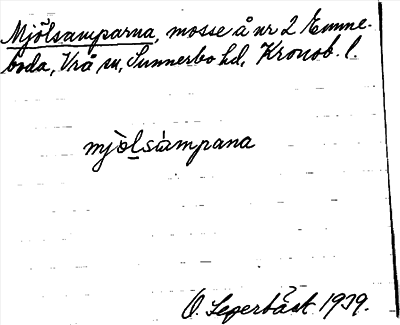 Mjölsamparna, mosse å nr 2 Emme-
boda, Vrå sn, Sunnerbo hd, Kronob. l.
mjò̱lsàmpana
O. Segerbäck 1939.